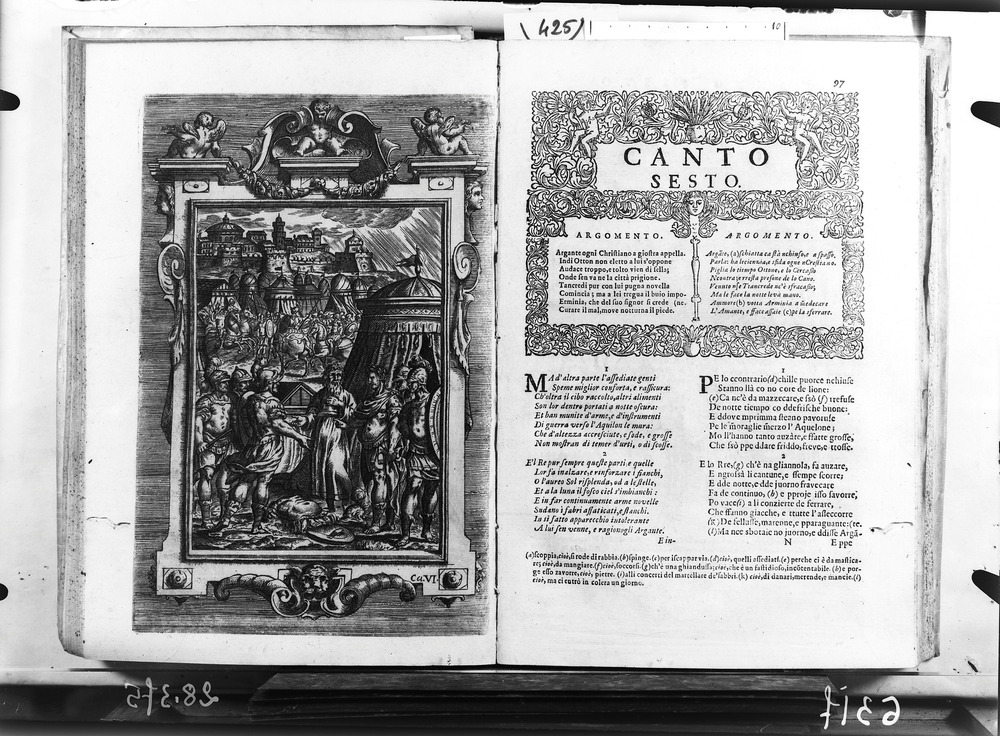 425
10
97
CANTO
SESTO.
ARGOMENTO.
Argante ogni Christiano a giostra appella.
Indi Otton non eletto a lui s'oppone
Audace troppo, e tolto vien di sella;
Onde sen va ne la città prigione.
Tancredi pur con lui pugna novella
Comincia; ma a lei tregua il buio impo-
Erminia, che del suo signor si crede (ne.
Curare il mal, move notturna il piede.
ARGOMENTO.
Argàte, (a) schiatta ca stà nchiuso, e a spasso.
Parlat' ha lecienzia, e sfida ogne nCrestiano.
Piglia lo tiempo Ottone, e lo Cercasso
Ncontra, e resta presone de lo Cano.
Venuto n'se Tancrede nc'è sfracasso;
Ma le face la notte levà mano.
Ammore (b) votta Arminia a medecare
L'Amante, e ffacc'assaie (c) pe la sferrare.
1
MA d'altra parte l'assediate genti
Speme miglior conforta, e rassicura:
Ch'oltra il cibo raccolto, altri alimenti
Son lor dentro portati a notte oscura:
Et han munite d'arme, e d'instrumenti
Di guerra verso l'Aquilon le mura:
Che d'altezza accresciute, e sode, e grosse
Non mostran di temer d'urti, o di scosse.
2
E'l Re pur sempre queste parti e quelle
Lor fà inalzare, e rinforzare i fianchi,
O l'aureo Sol risplenda, od a le stelle,
Et a la luna il fosco ciel s'imbianchi:
E in far continuamente arme novelle
Sudano i fabri affaticati, e stanchi.
In sì fatto apparecchio intolerante
A lui sen venne, e ragionogli Argante.
E in-
1
PE lo ccontrario (d) chille puorce nchiuse
Stanno llà co no core de lione:
(e) Ca nc'è da mazzecare, e ssò (f) trefuse
De notte tiempo co ddefische buone:
E ddove mprimma steano pavoruse
Pe le moraglie mierzo l'Aquelone;
Mo ll'hanno tanto auzàte, e ffatte grosse,
Che ssò ppe ddare friddo, freve, e ttosse.
2
E lo Rre, (g) ch'è na gliannola, fa auzare,
E ngrossà li cantune, e ssempe scorre;
E dde notte, e dde juorno fravecare
Fa de continuo, (h) e pproje isso savorre,
Po vace (i) a li conzierte de ferrare,
Che ffanno giacche, e ttutte l'asseccorre
(k) De fellasse, marenne, e pparaguante: (te.
(l) Ma nce sbotaie no juorno, e ddisse Argã-
N
E ppe
(a) scoppia, cioè, si rode di rabbia. (b) spinge. (c) per iscappar via. (d) cioè, quelli assediati. (e) perche ci è da mastica-
re; cioè, da mangiare. (f) cioè, soccorsi. (g) ch'è una ghiandussa; cioè, che è un fastidioso, incostentabile. (h) e por-
ge esso zavorre, cioè, pietre. (i) alli concerti del martellare de' fabbri. (k) cioè, di danari, merende, e mancie. (l)
cioè, ma ei entrò in colera un giorno.
Ca. VI.
28.375
6317